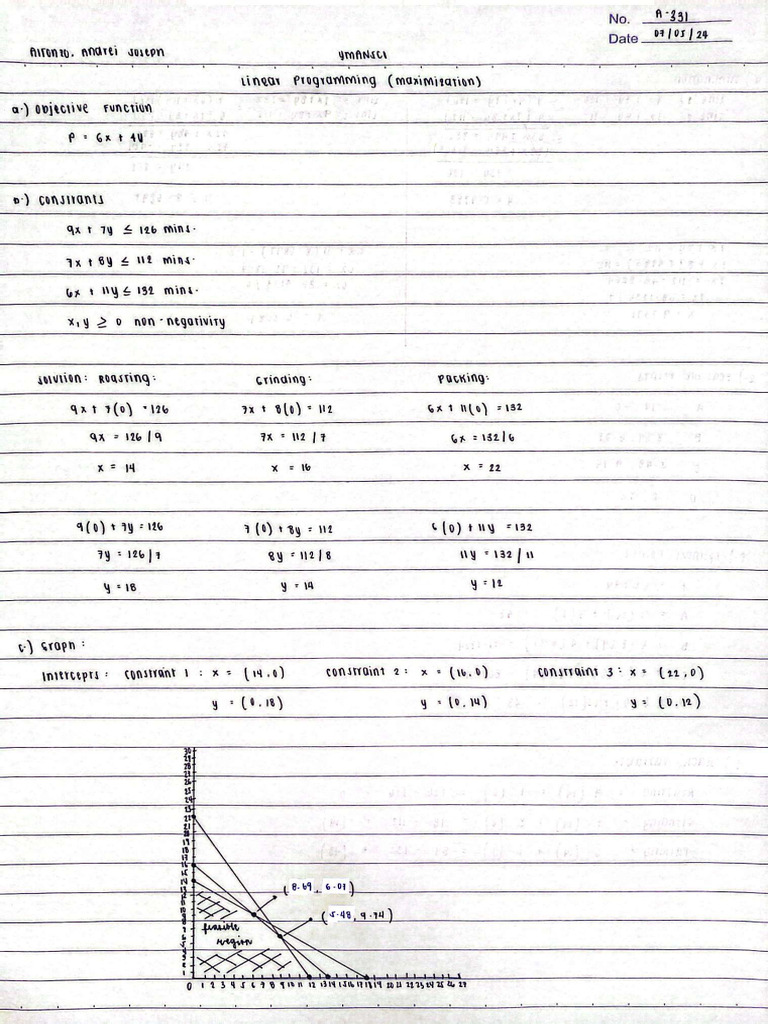 No. A-331
Date 07/05/24
Alfonzo, Andrei Joseph YMANSCI
Linear Programming (Maximization)
a.) Objective Function
P = 6x + 4y
b.) Constraints
9x + 7y ≤ 126 mins.
7x + 8y ≤ 112 mins.
6x + 11y ≤ 132 mins.
x, y ≥ 0 non-negativity
Solution: Roasting: Grinding: Packing:
9x + 7(0) = 126 7x + 8(0) = 112 6x + 11(0) = 132
9x = 126/9 7x = 112/7 6x = 132/6
x = 14 x = 16 x = 22
9(0) + 7y = 126 7(0) + 8y = 112 6(0) + 11y = 132
7y = 126/7 8y = 112/8 11y = 132/11
y = 18 y = 14 y = 12
c.) Graph:
Intercepts: Constraint 1: x = (14,0) Constraint 2: x = (16,0) Constraint 3: x = (22,0)
y = (0,18) y = (0,14) y = (0,12)
(8.69, 6.07)
(5.48, 9.74)
feasible
region
0 1 2 3 4 5 6 7 8 9 10 11 12 13 14 15 16 17 18 19 20 21 22 23 24 25 26 27